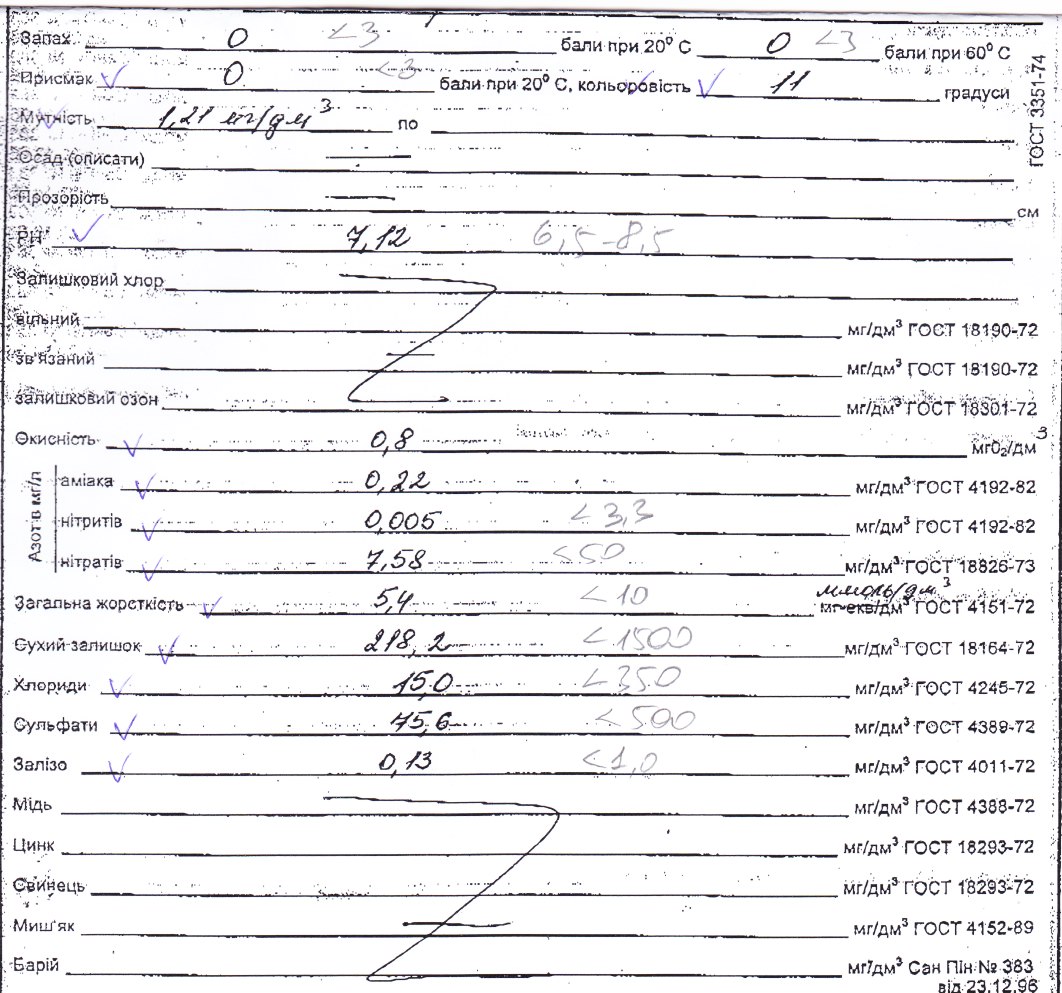 Запах 0 <3 бали при 20⁰ С 0 <3 бали при 60⁰ С
Присмак ✓ 0 <3 бали при 20⁰ С, кольоровість ✓ 11 градуси
ГОСТ 3351-74
Мутність 1,21 мг/дм³ по
Осад (описати) —
Прозорість — см
РН ✓ 7,12 6,5-8,5
Залишковий хлор
вільний мг/дм³ ГОСТ 18190-72
зв'язаний — мг/дм³ ГОСТ 18190-72
залишковий озон мг/дм³ ГОСТ 18301-72
Окисність ✓ 0,8 мг0₂/дм³
Азот в мг/л
аміака ✓ 0,22 мг/дм³ ГОСТ 4192-82
нітритів ✓ 0,005 <3,3 мг/дм³ ГОСТ 4192-82
нітратів ✓ 7,58 <50 мг/дм³ ГОСТ 18826-73
ммоль/дм³
Загальна жорсткість ✓ 5,4 <10 мг-екв/дм³ ГОСТ 4151-72
Сухий залишок ✓ 218,2 <1500 мг/дм³ ГОСТ 18164-72
Хлориди ✓ 15,0 <350 мг/дм³ ГОСТ 4245-72
Сульфати ✓ 45,6 <500 мг/дм³ ГОСТ 4389-72
Залізо ✓ 0,13 <1,0 мг/дм³ ГОСТ 4011-72
Мідь мг/дм³ ГОСТ 4388-72
Цинк мг/дм³ ГОСТ 18293-72
Свинець мг/дм³ ГОСТ 18293-72
Миш'як — мг/дм³ ГОСТ 4152-89
Барій мг/дм³ Сан Пін № 383
від 23.12.96